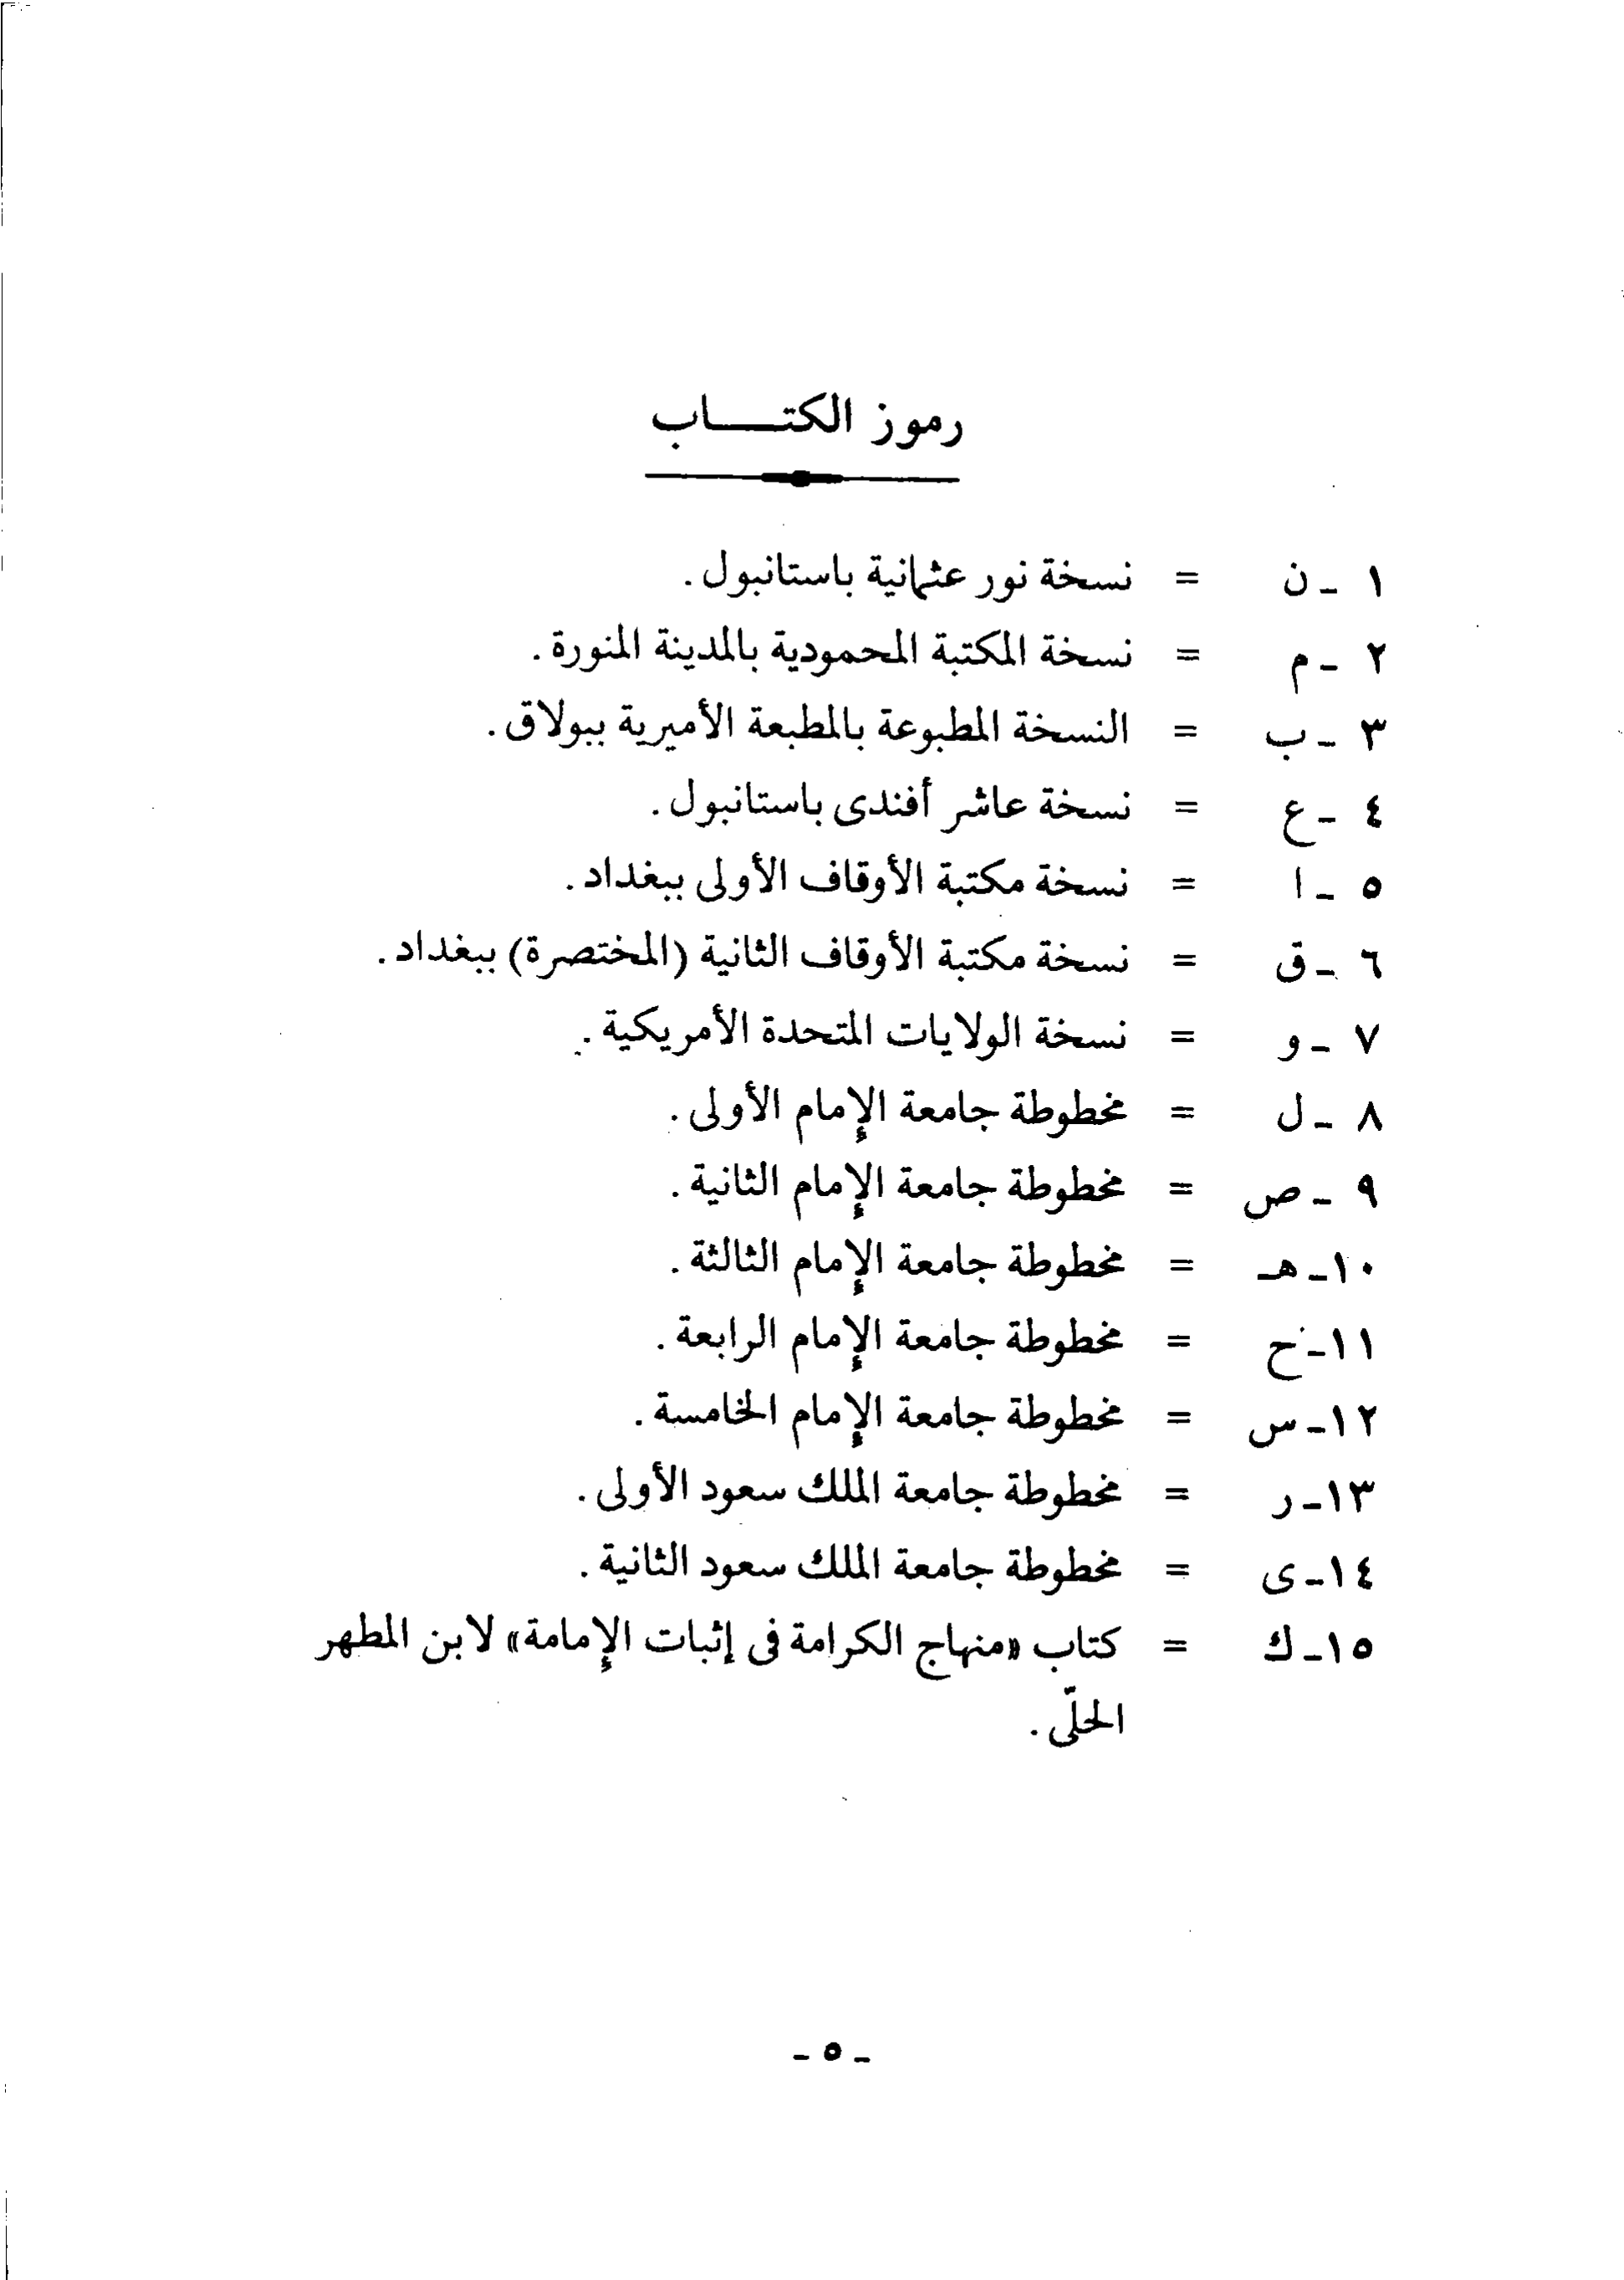 رموز الكتـــــاب
١ - ن = نسخة نور عثمانية باستانبول .
٢ - م = نسخة المكتبة المحمودية بالمدينة المنورة .
٣ - ب = النسخة المطبوعة بالمطبعة الأميرية ببولاق .
٤ - ع = نسخة عاشر أفندى باستانبول .
٥ - ا = نسخة مكتبة الأوقاف الأولى ببغداد .
٦ - ق = نسخة مكتبة الأوقاف الثانية (المختصرة) ببغداد .
٧ - و = نسخة الولايات المتحدة الأمريكية .
٨ - ل = مخطوطة جامعة الإمام الأولى .
٩ - ص = مخطوطة جامعة الإمام الثانية .
١٠- هـ = مخطوطة جامعة الإمام الثالثة .
١١- ح = مخطوطة جامعة الإمام الرابعة .
١٢- س = مخطوطة جامعة الإمام الخامسة .
١٣- ر = مخطوطة جامعة الملك سعود الأولى .
١٤- ى = مخطوطة جامعة الملك سعود الثانية .
١٥- ك = كتاب «منهاج الكرامة فى إثبات الإمامة» لابن المطهر
الحلّى .
- ٥ -